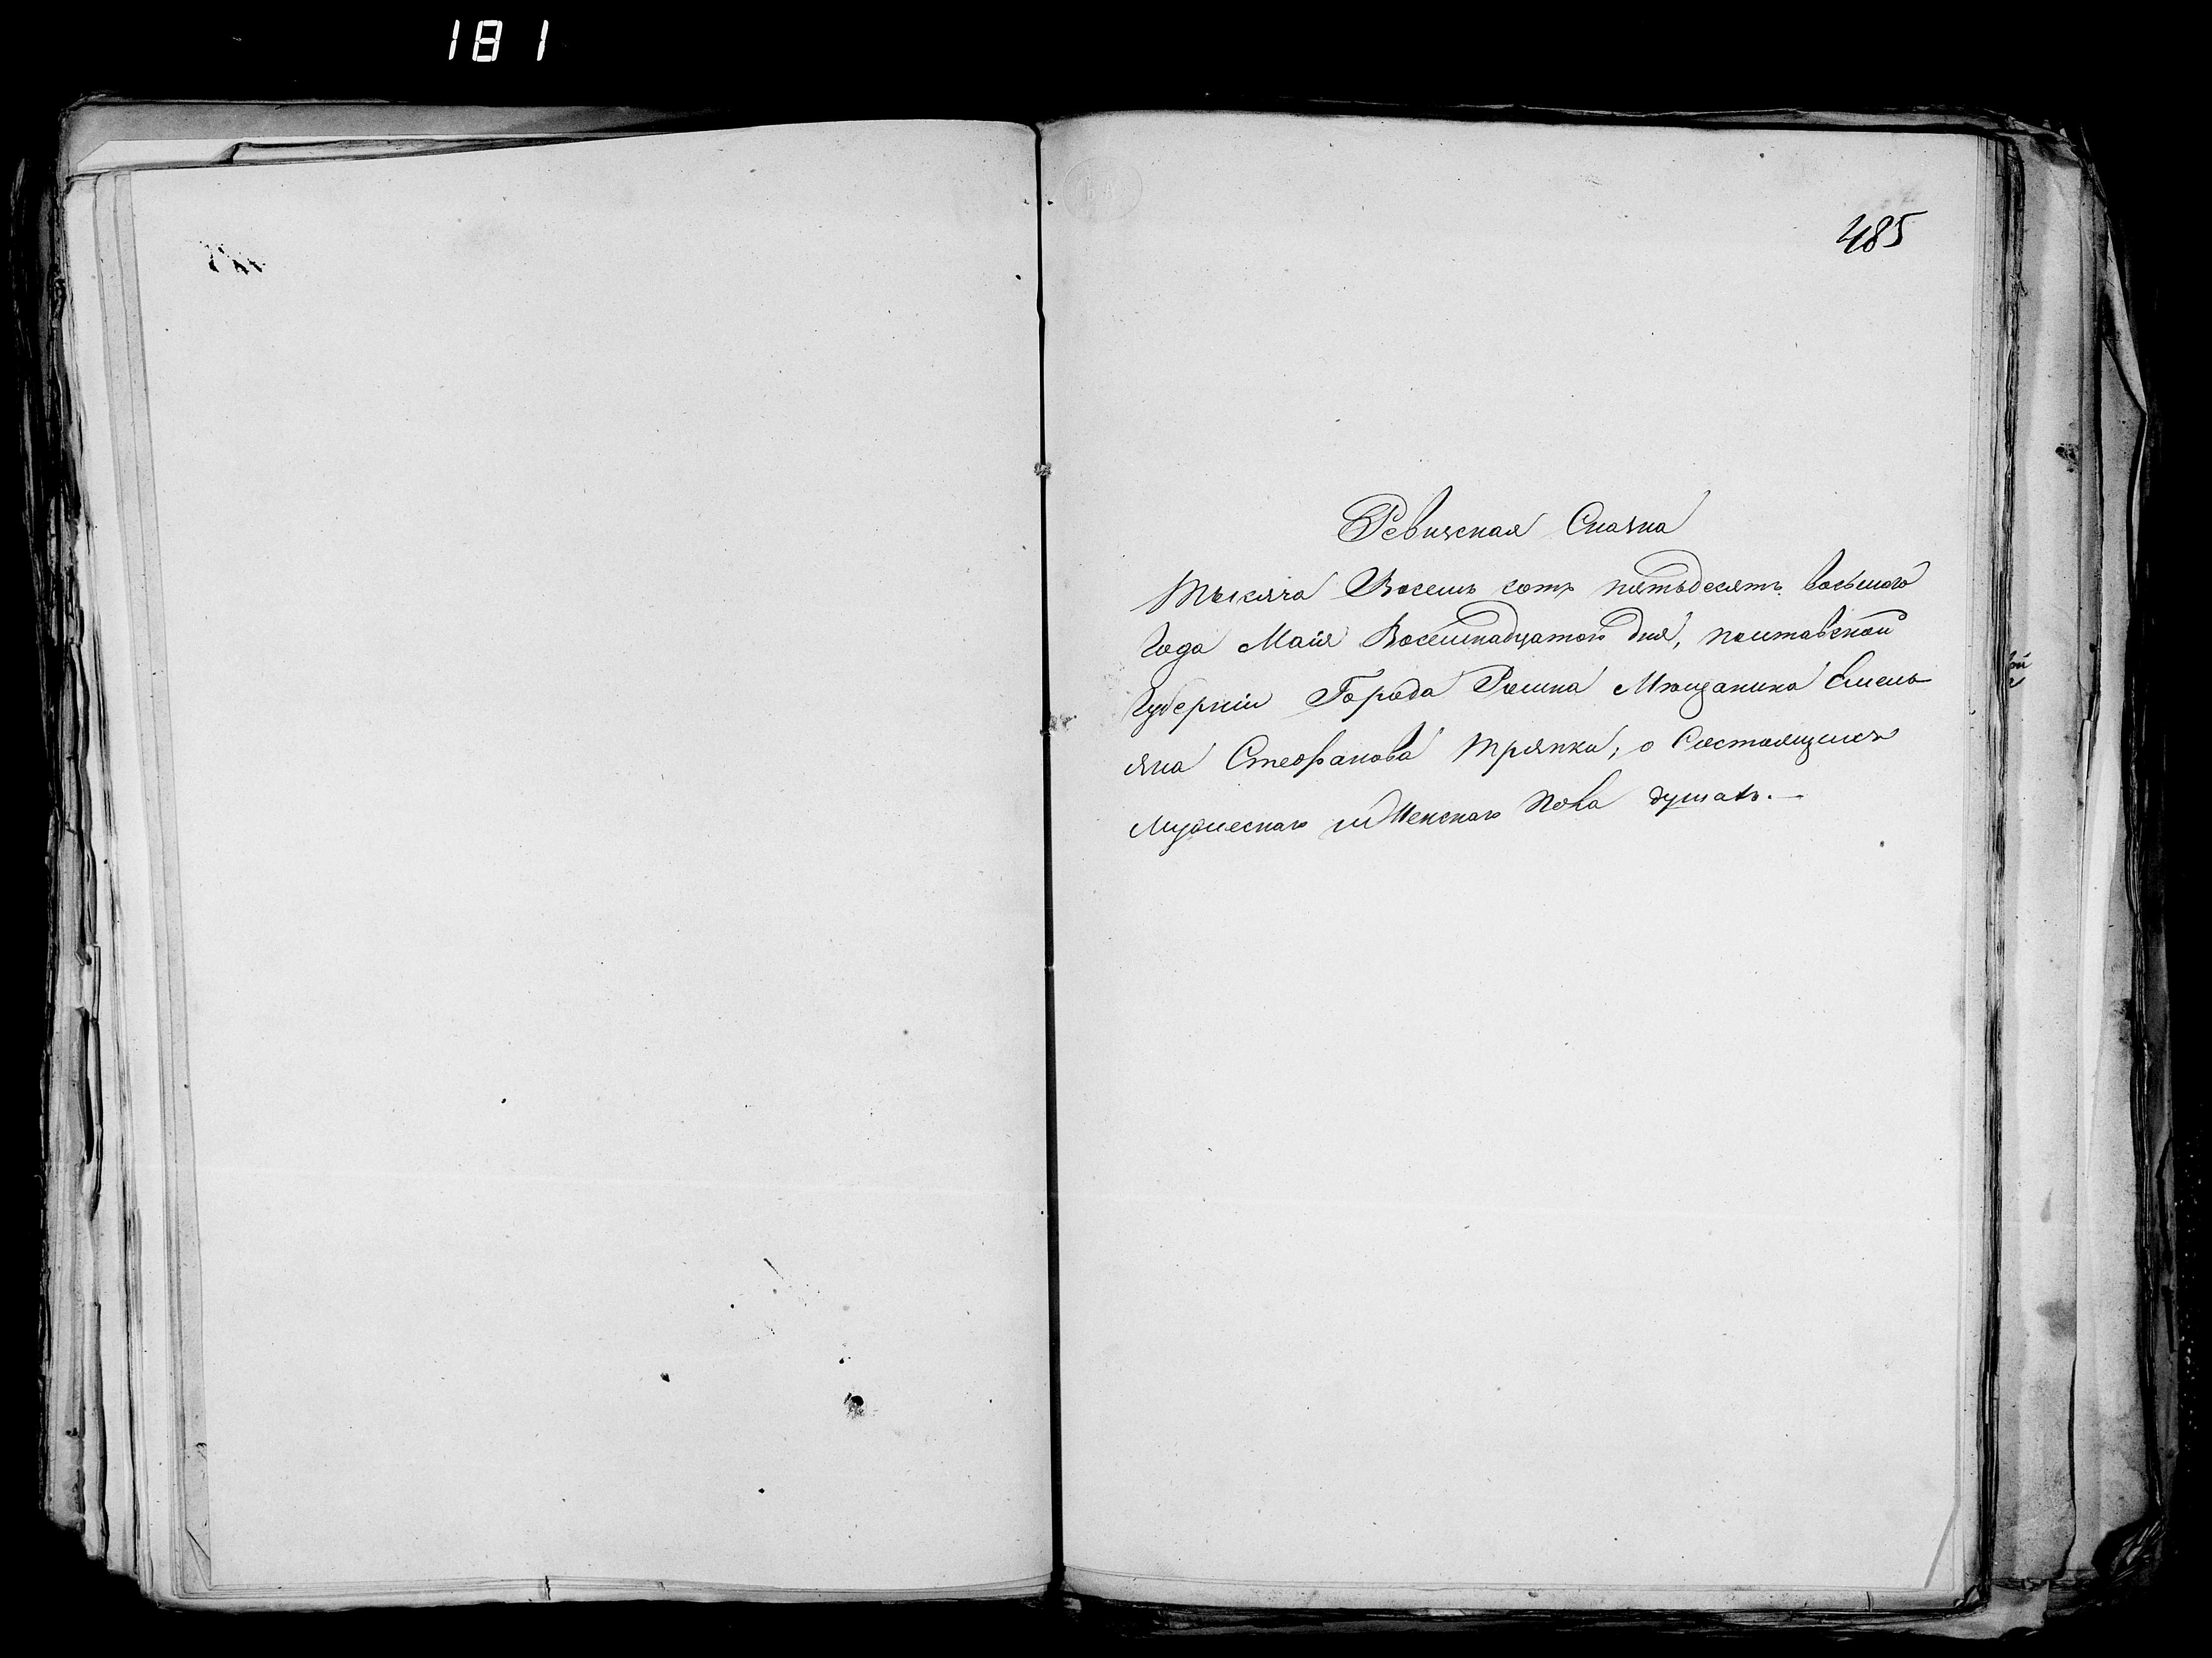 181
485
Ревизская Сказка
Тысяча Восемь сотъ пятьдесятъ восьмого
Года Маія Восемнадцатого дня, полтавской
Губерніи Города Ромна Мѣщанина Емель
яна Стефанова Тряпки, о Состоящихъ
Мужескаго и Женскаго Пола душахъ.—